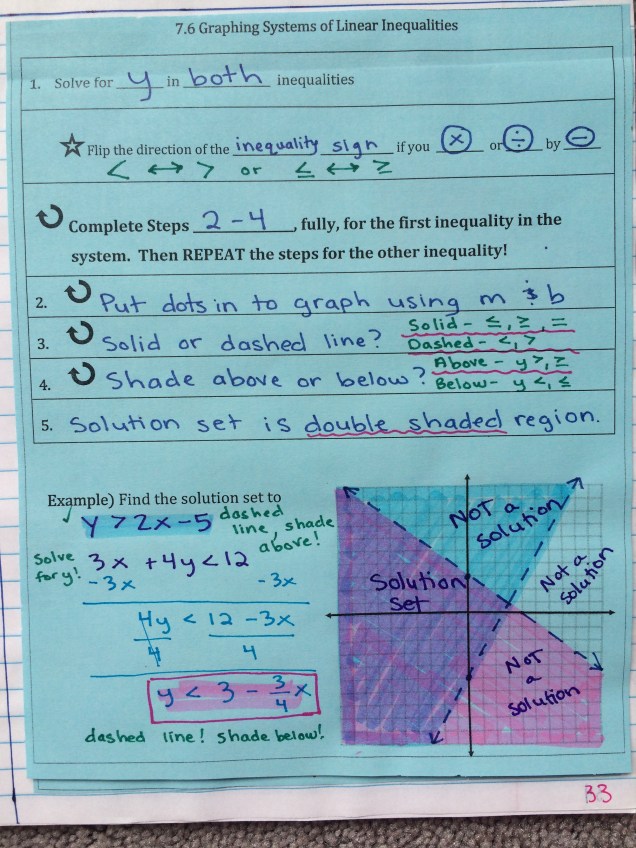 7.6 Graphing Systems of Linear Inequalities
1. Solve for y in both inequalities
☆ Flip the direction of the inequality sign if you × or ÷ by −
< ↔ > or ≤ ↔ ≥
Complete Steps 2-4, fully, for the first inequality in the
system. Then REPEAT the steps for the other inequality!
2. Put dots in to graph using m & b
3. Solid or dashed line? Solid - ≤, ≥, =
Dashed - <, >
4. Shade above or below? Above - y >, ≥
Below - y <, ≤
5. Solution set is double shaded region.
Example) Find the solution set to
✓ y > 2x - 5 dashed
line, shade
above!
Solve
for y!
3x + 4y < 12
-3x -3x
4y < 12 - 3x
4 4
y < 3 - 3/4 x
dashed line! shade below!
NOT a
solution
Solution
set
Not a
solution
NOT
a
solution
33